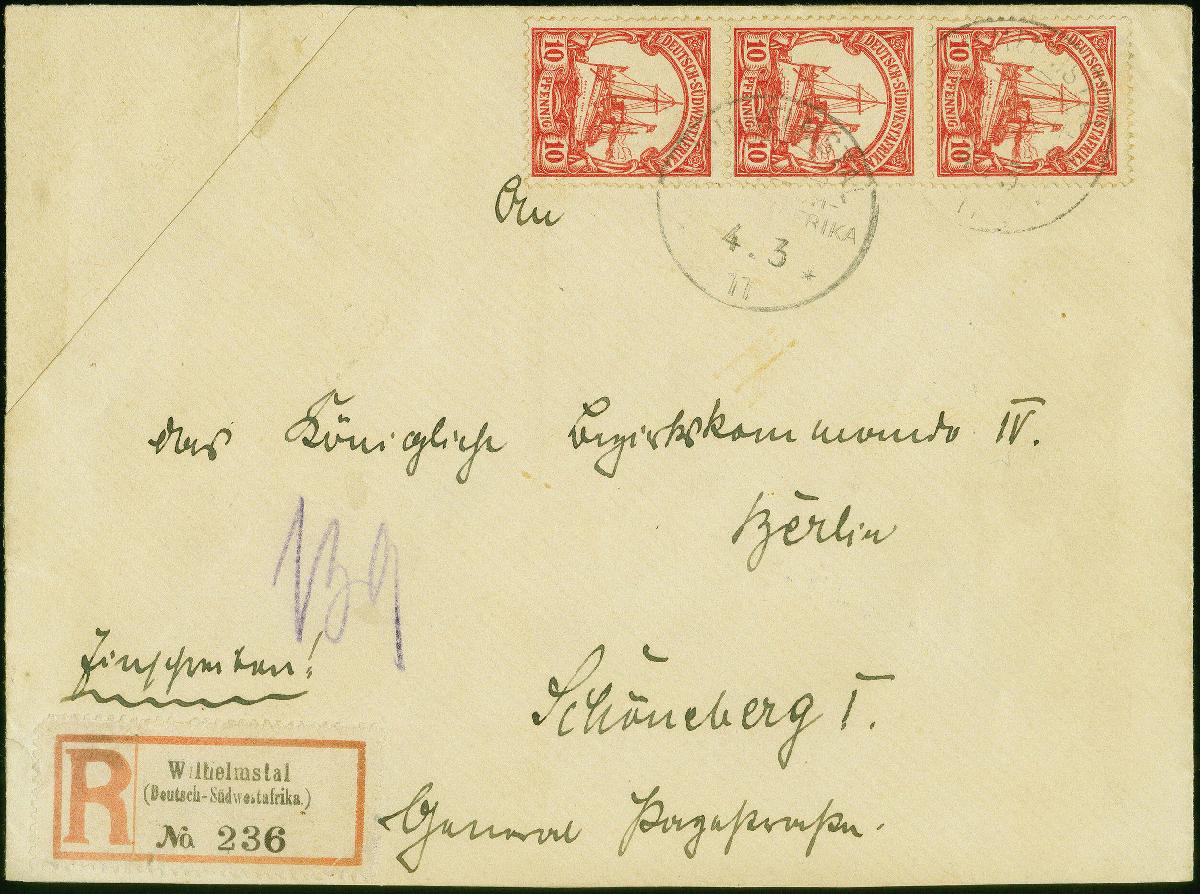 10 PFENNIG 10
DEUTSCH-SÜDWESTAFRIKA
10 PFENNIG 10
DEUTSCH-SÜDWESTAFRIKA
10 PFENNIG 10
DEUTSCH-SÜDWESTAFRIKA
4.3
11
An
das Königliche Bezirkskommando IV.
Berlin
Einschreiben!
Schöneberg I.
General Papestraße.
R
Wilhelmstal
(Deutsch-Südwestafrika.)
No 236